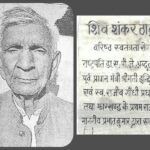 शिव शंकर ठा
वरिष्ठ स्वतन्त्रता
राष्ट्रपति डा. ए. पी. जे. अब्दुल
पूर्व प्रधान मंत्री श्रीमती इन्दि
एवं स्व. राजीव गाँधी
तथा झारखण्ड के प्रथम रा
प्रभात कुमार द्वारा